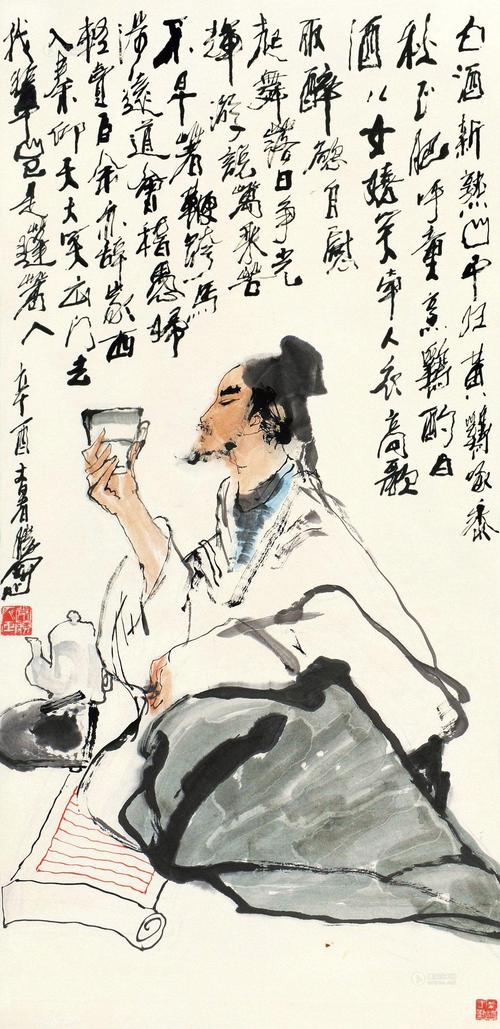 白酒新熟山中归黄鷄啄黍
秋正肥呼童烹鷄酌白
酒儿女嬉笑牵人衣高歌
取醉欲自慰
起舞落日争光
輝游說萬乘苦
不早著鞭跨馬
涉遠道會稽愚婦
輕買臣余亦辞家西
入秦仰天大笑出门去
我輩岂是蓬蒿人
辛酉大暑